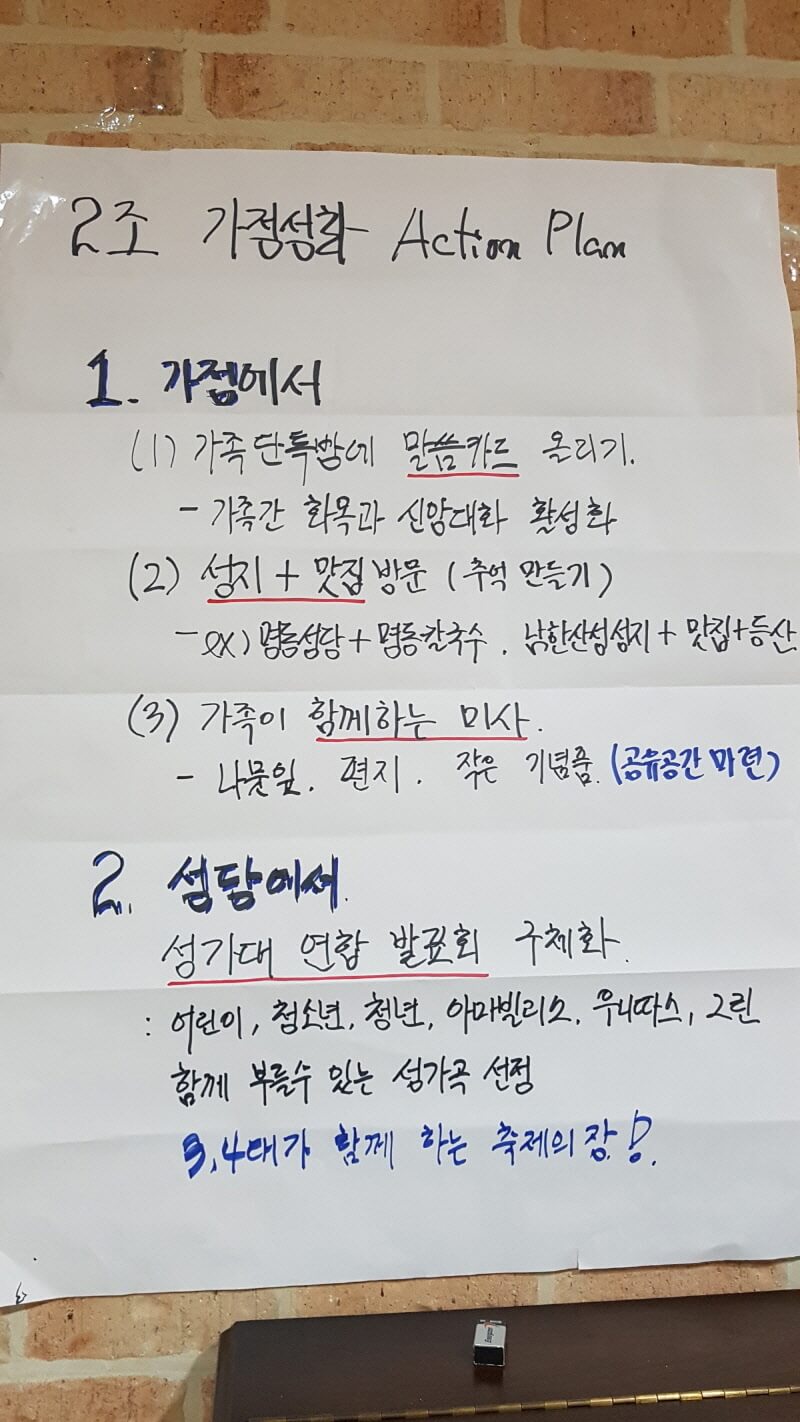 2조 가정성화 Action Plan
1. 가정에서
(1) 가족단톡방에 말씀카드 올리기.
- 가족간 화목과 신앙대화 활성화
(2) 성지 + 맛집 방문 (추억 만들기)
- ex) 명동성당 + 명동칼국수. 남한산성성지 + 맛집+등산
(3) 가족이 함께하는 미사.
- 나뭇잎. 편지. 작은 기념품. (공유공간 마련)
2. 성당에서.
성가대 연합 발표회 구체화.
: 어린이, 청소년, 청년, 아마빌리스, 우니따스, 그린
함께 부를수 있는 성가곡 선정
3,4대가 함께 하는 축제의 장!